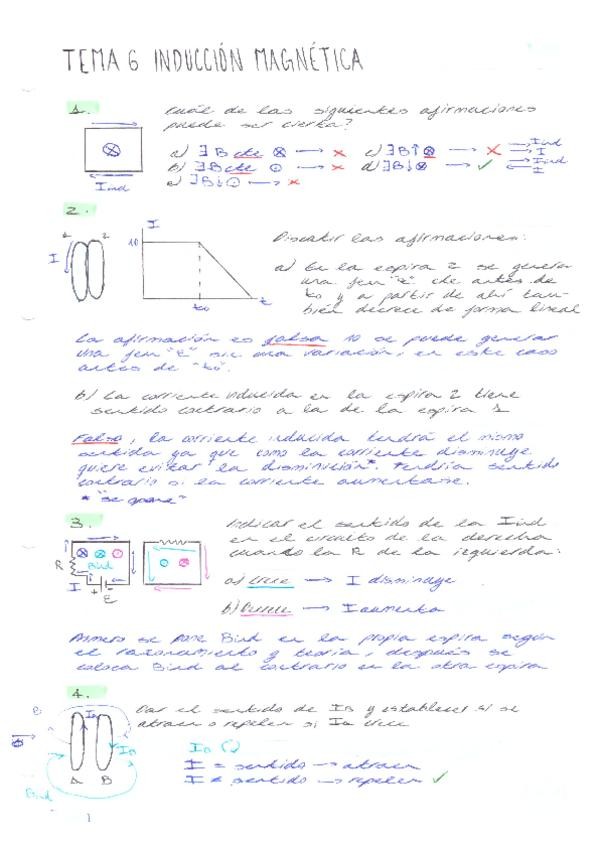 TEMA 6 INDUCCIÓN MAGNÉTICA
1. Cuál de las siguientes afirmaciones
puede ser cierta?
a) ∃ B cte ⊗ → ✗ c) ∃ B ↑ ⊗ → ✗ Iind
I
b) ∃ B cte ⊙ → ✗ d) ∃ B ↓ ⊗ → ✓ Iind
I
e) ∃ B ↓ ⊙ → ✗
Iind
2.
1 2 I
I 10
to t
Discutir las afirmaciones:
a) En la espira 2 se genera
una fem "ε" cte antes de
to y a partir de ahí tam-
bién decrece de forma lineal
La afirmación es falsa no se puede generar
una fem "ε" sin una variación, en este caso
antes de "to".
b) La corriente inducida en la espira 2 tiene
sentido contrario a la de la espira 1
Falso, la corriente inducida tendrá el mismo
sentido ya que como la corriente disminuye
quiere evitar la disminución*. Tendría sentido
contrario si la corriente aumentase.
* "se opone"
3. Indicar el sentido de la Iind
en el circuito de la derecha
cuando la R de la izquierda:
R Bind
I + - ε
a) Crece → I disminuye
b) Decrece → I aumenta
Primero se pone Bind en la propia espira según
el razonamiento y teoría, después se
coloca Bind al contrario en la otra espira
4. Dar el sentido de IB y establecer si se
atraen o repelen si IA crece
B IA
Φ IB
A B
Bind
IB
I = sentido → atraen
I ≠ sentido → repelen ✓
1